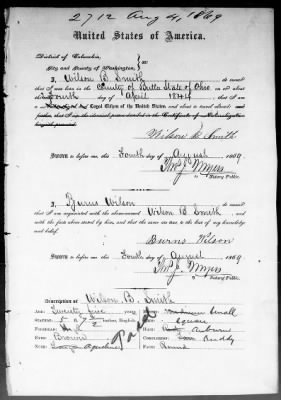 2712 Aug 4, 1869
United States of America.
District of Columbia,
City and County of Washington, } ss:
I, Wilson B. Smith do swear
that I was born in the County of Butler State of Ohio on or about
Fourth day of April 1844, that I am
a Legal Citizen of the United States, and about to travel abroad
further, that I am the identical person described in the Certificate of Naturalization
herewith presented.
Wilson B. Smith
SWORN to before me, this Fourth day of August 1869
Thos J. Myers
Notary Public.
I, Burns Wilson do swear
that I am acquainted with the above-named Wilson B. Smith and with
the facts above stated by him, and that the same are true, to the best of my knowledge
and belief.
Burns Wilson
SWORN to before me, this Fourth day of August 1869
Thos J. Myers
Notary Public.
Description of Wilson B. Smith
AGE: Twenty five years MOUTH: Small
STATURE: 5 feet 7 1/2 inches, English CHIN: Square
FOREHEAD: HAIR: Auburn
EYES: Brown COMPLEXION: Ruddy
NOSE: Aquiline FACE: Round
Paid